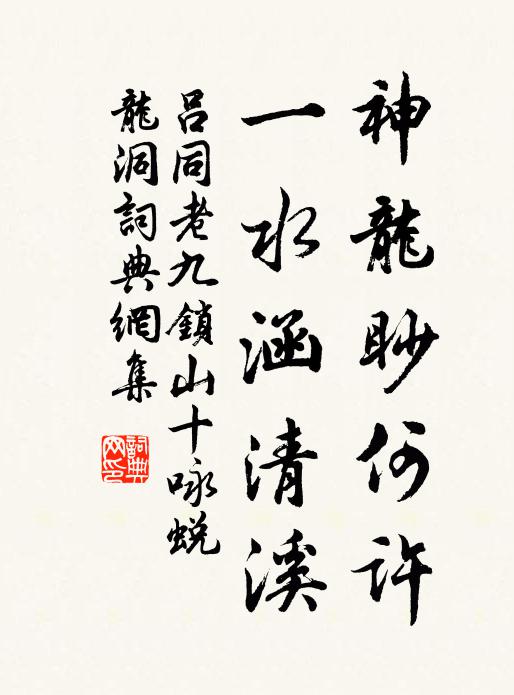 神龍眇何許
一水涵清溪
呂同老九鎖山十咏蜕
龍洞詞典網集
詞典网印